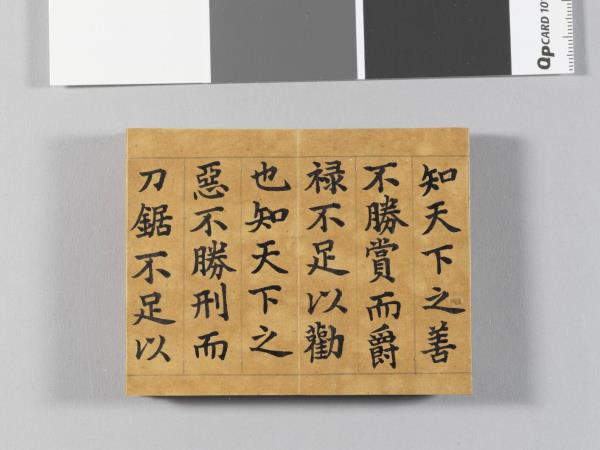 QPCARD 101
知天下之善
不勝賞而爵
禄不足以勸
也知天下之
惡不勝刑而
刀鋸不足以